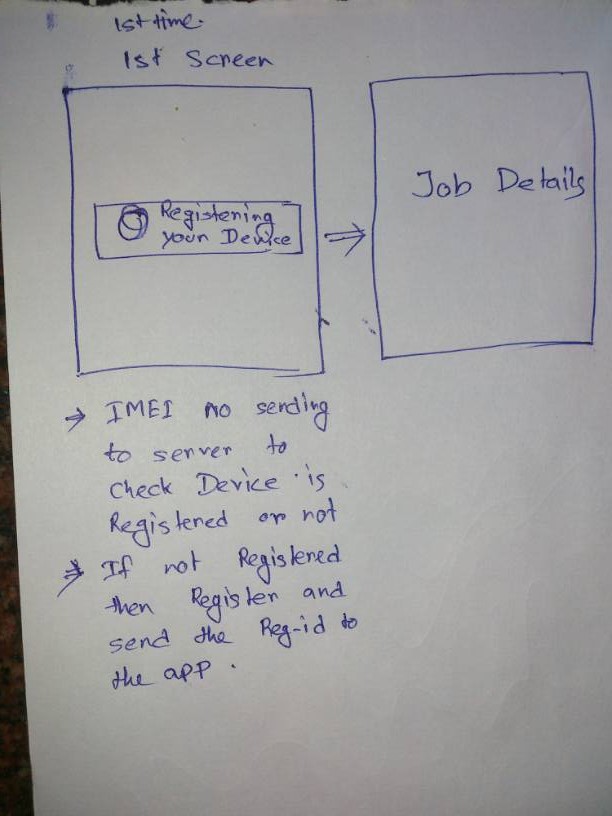 1st time.
1st Screen
Registering
your Device
Job Details
→ IMEI no sending
to server to
check Device is
Registered or not
→ If not Registered
then Register and
send the Reg-id to
the app.